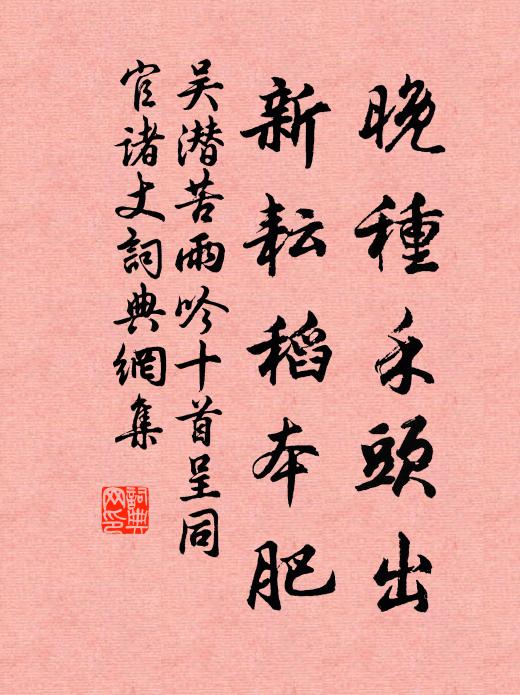 晚種禾頭出
新耘稻本肥
吴潜苦雨吟十首呈同
官诸丈詞典網集
詞典
网印